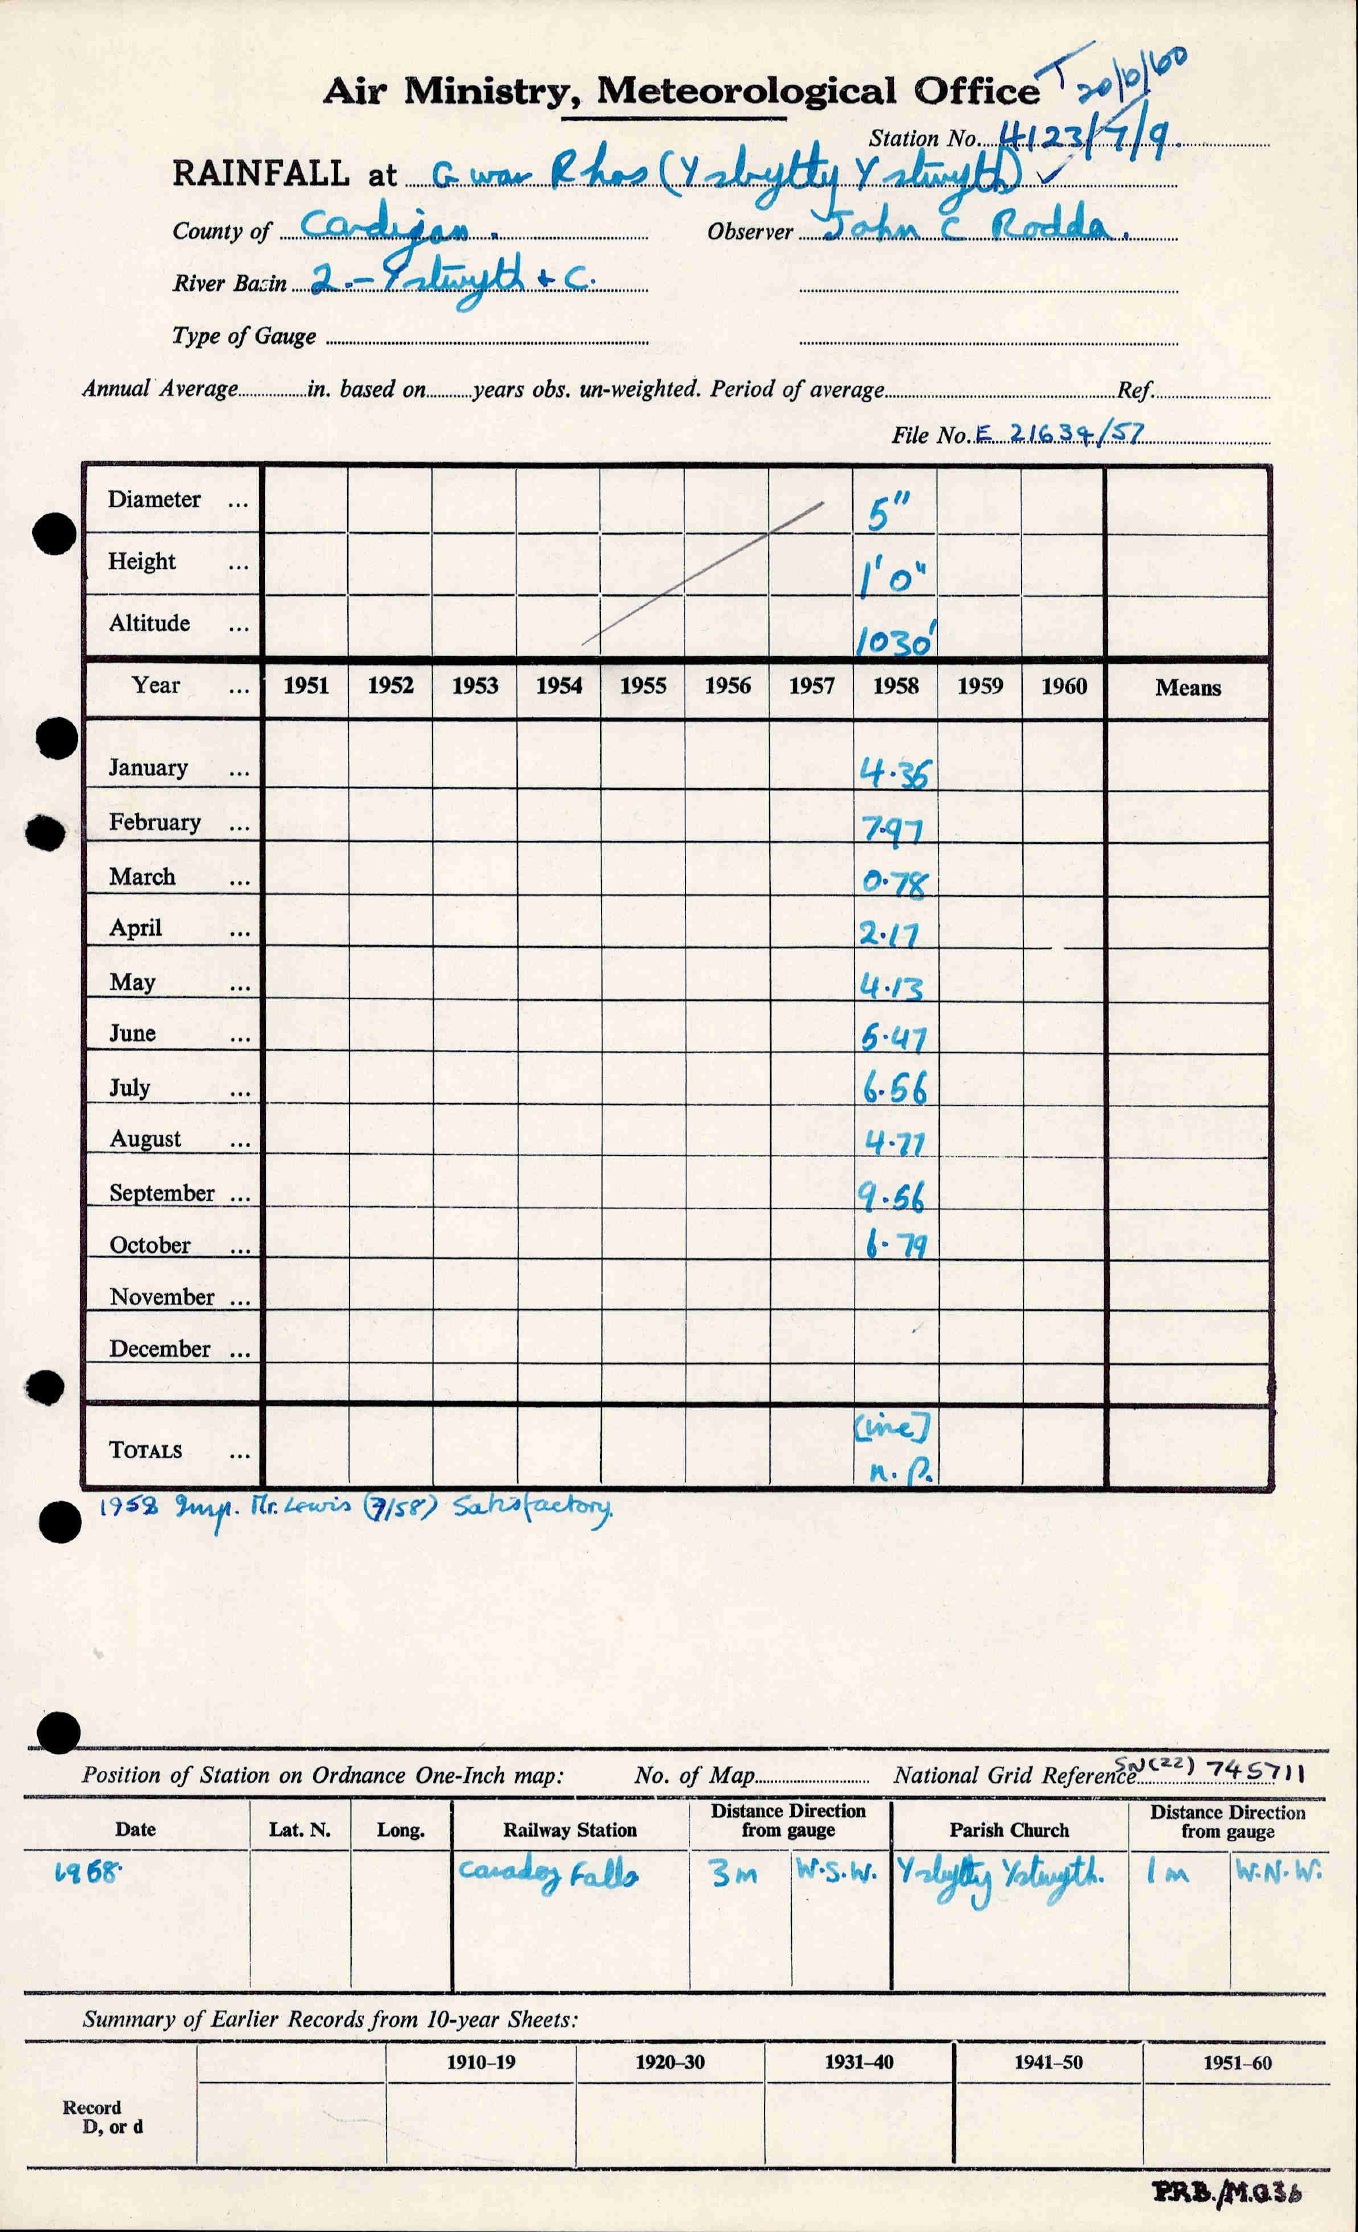 Air Ministry, Meteorological Office T 20/6/60
Station No. 4123/7/9.
RAINFALL at Gwar Rhos (Ysbytty Ystwyth) ✓
County of Cardigan. Observer John C Rodda.
River Basin 2.-Ystwyth + C.
Type of Gauge
Annual Average in. based on years obs. un-weighted. Period of average Ref.
File No. E 21634/57
Diameter ... 5"
Height ... 1'0"
Altitude ... 1030'
Year ... 1951 1952 1953 1954 1955 1956 1957 1958 1959 1960 Means
January ... 4.36
February ... 7.97
March ... 0.78
April ... 2.17
May ... 4.13
June ... 5.47
July ... 6.56
August ... 4.77
September ... 9.56
October ... 6.79
November ...
December ...
TOTALS ... [inc]
n.p.
1958 Insp. Mr. Lewis (7/58) Satisfactory.
Position of Station on Ordnance One-Inch map: No. of Map National Grid Reference SN(22) 745711
Date Lat. N. Long. Railway Station Distance Direction from gauge Parish Church Distance Direction from gauge
1958 Caradog Falls 3m W.S.W. Ysbytty Ystwyth. 1m W.N.W.
Summary of Earlier Records from 10-year Sheets:
1910–19 1920–30 1931–40 1941–50 1951–60
Record
D, or d
P.R.B./M.O.36